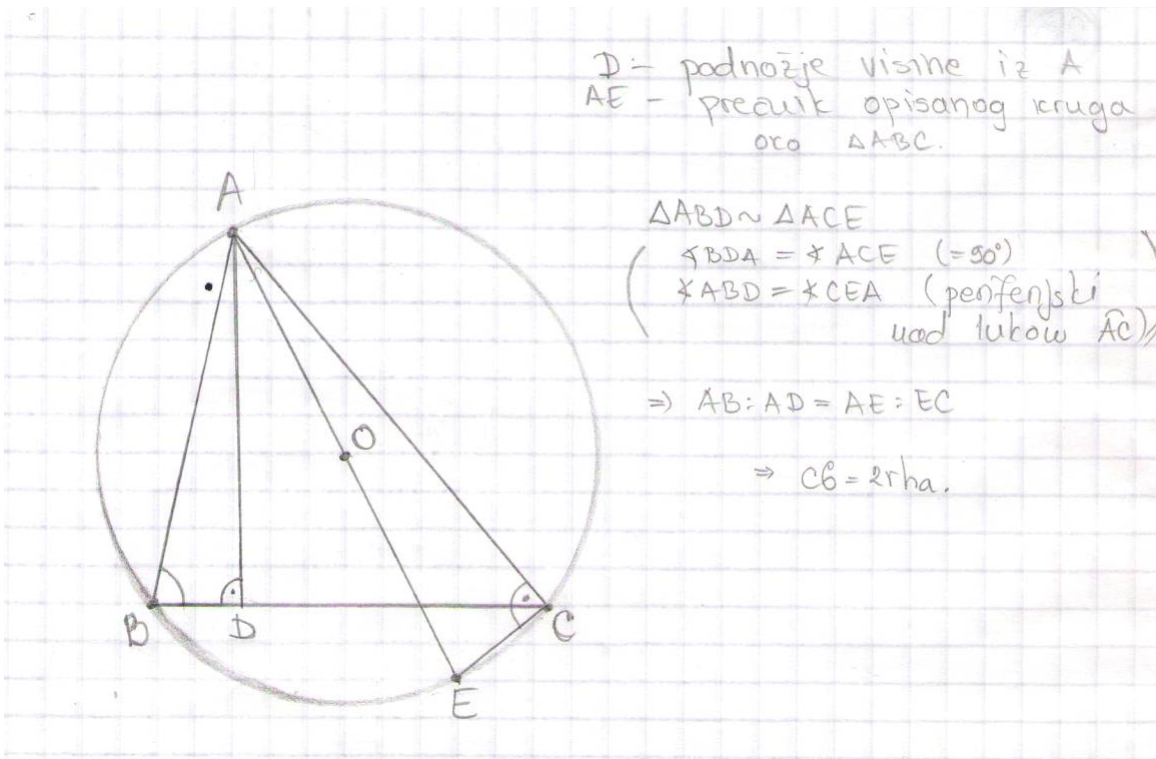 D - podnožje visine iz A
AE - prečnik opisanog kruga
oko △ABC.
△ABD ~ △ACE
∢BDA = ∢ACE (=90°)
∢ABD = ∢CEA (periferijski
nad lukom AC)
⇒ AB : AD = AE : EC
⇒ cb = 2rha.
A
O
B
D
C
E